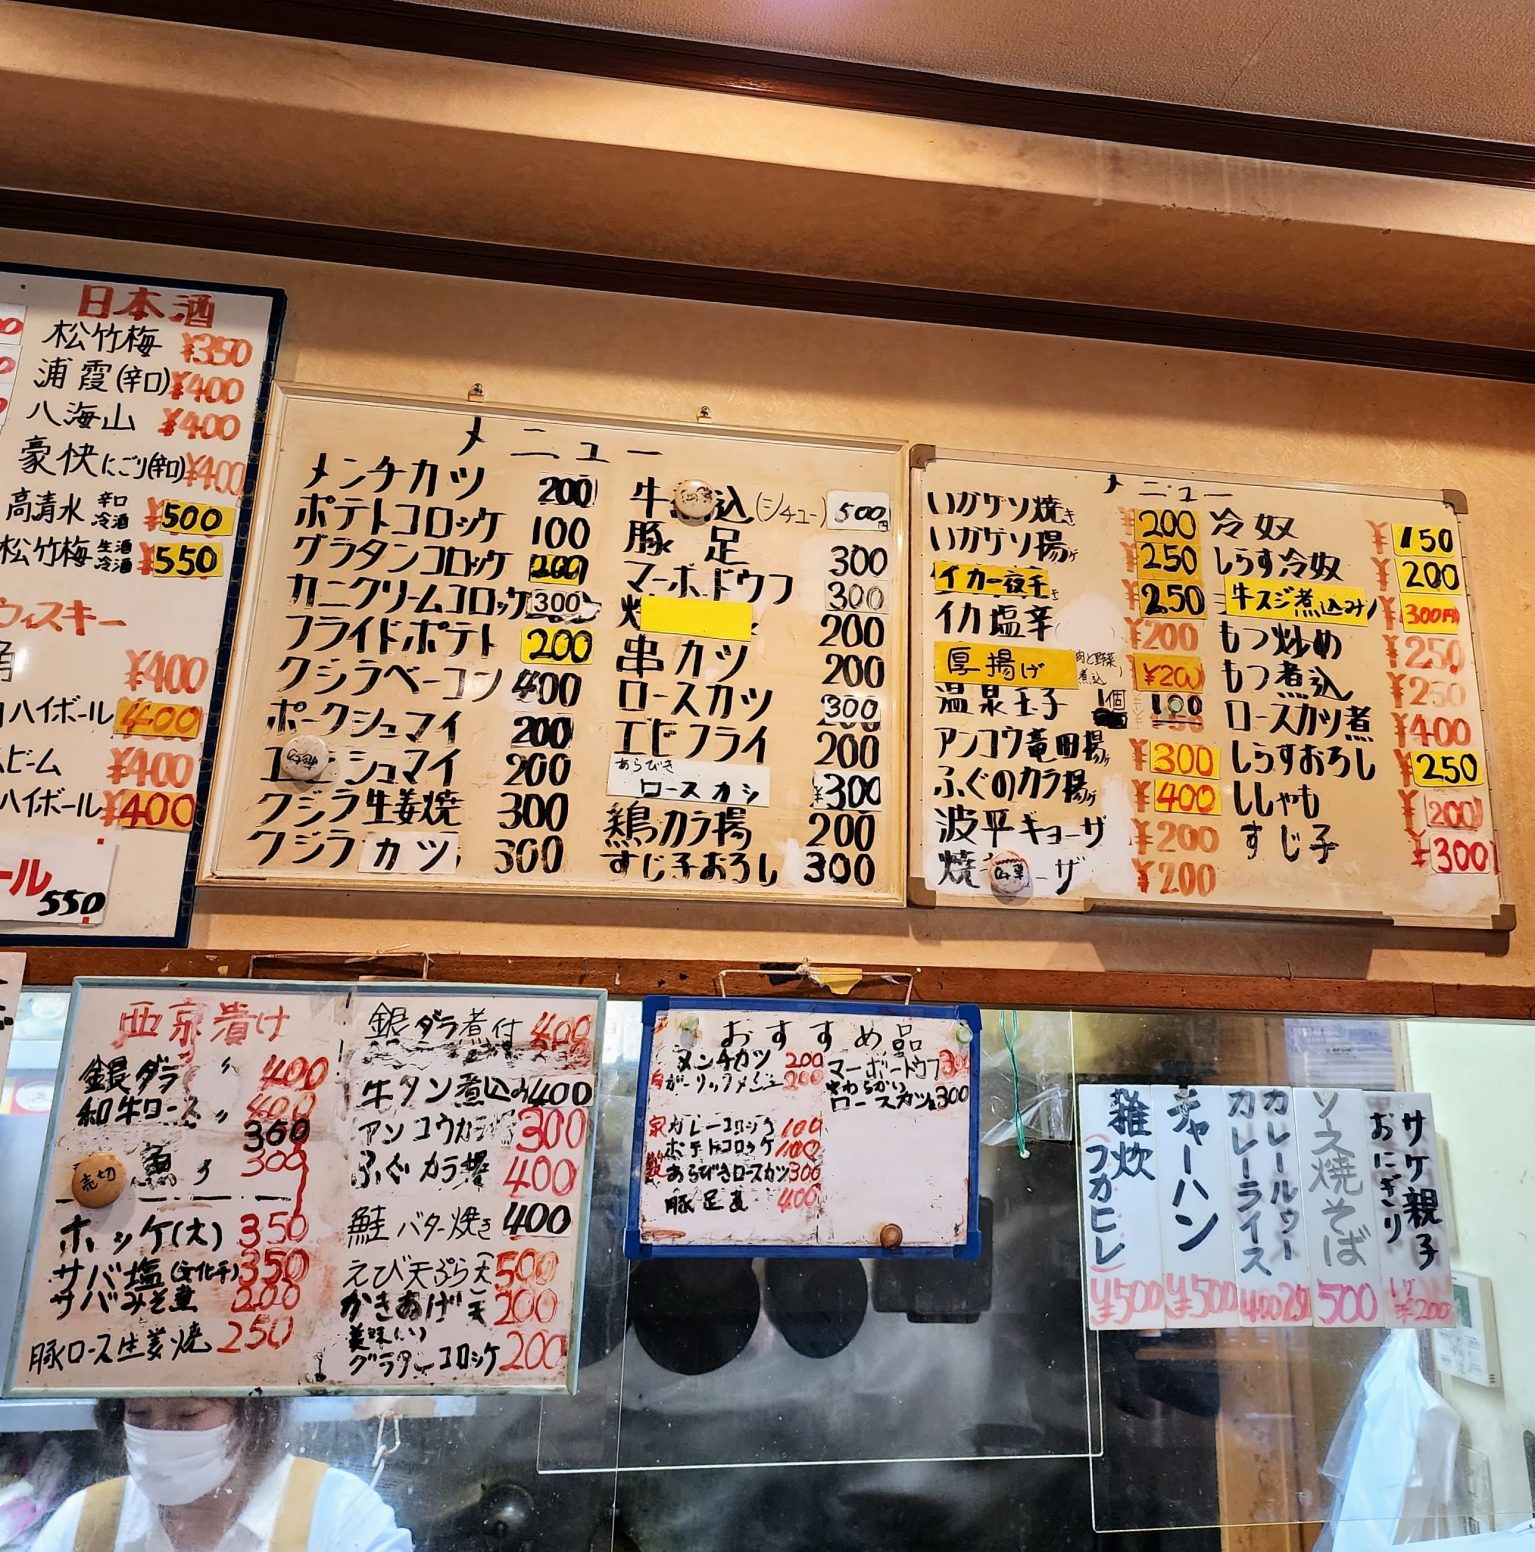 日本酒
松竹梅 ¥350
浦霞(辛口) ¥400
八海山 ¥400
豪快にごり(辛口) ¥400
高清水 辛口 冷酒 ¥500
松竹梅 生酒 冷酒 ¥550
ウィスキー
¥400
ハイボール 400
ビーム ¥400
ハイボール ¥400
ール
550
メニュー
メンチカツ 200
ポテトコロッケ 100
グラタンコロッケ 200
カニクリームコロッケ 300
フライドポテト 200
クジラベーコン 400
ポークシュマイ 200
シュマイ 200
クジラ生姜焼 300
クジラカツ 300
牛 込(シチュー) 500円
豚足 300
マーボードウフ 300
200
串カツ 200
ロースカツ 300
エビフライ 200
あらびき
ロースカシ ¥300
鶏カラ揚 200
すじ子おろし 300
メニュー
いかゲソ焼き ¥200
いかゲソ揚げ ¥250
イカ一夜干 ¥250
イカ塩辛 ¥200
厚揚げ 肉と野菜煮込 ¥200
温泉玉子 1個 100
アンコウ竜田揚げ ¥300
ふぐのカラ揚げ ¥400
波平ギョーザ ¥200
焼 ーザ ¥200
冷奴 ¥150
しらす冷奴 ¥200
牛スジ煮込み 300円
もつ炒め ¥250
もつ煮込 ¥250
ロースカツ煮 ¥400
しらすおろし ¥250
ししゃも ¥200
すじ子 ¥300
西京漬け
銀ダラ 〃 400
和牛ロース 〃 400
360
魚 〃 300
ホッケ(大) 350
サバ塩(文化干) 350
サバみそ煮 200
豚ロース生姜焼 250
銀ダラ煮付 400
牛タン煮込み 400
アンコウカラ 300
ふぐカラ揚 400
鮭バター焼き 400
えび天ぷら(大) 500
かきあげ天 200
美味しい
グラタンコロッケ 200
おすすめ品
メンチカツ 200
ガーリックメンチ 200
カレーコロッケ 100
ポテトコロッケ 100
あらびきロースカツ 300
豚足煮 400
マーボードウフ 300
やわらかい
ロースカツ煮 300
雑炊
(フカヒレ)
¥500
チャーハン
¥500
カレールゥー
カレーライス
400 250
ソース焼そば
500
サケ親子
おにぎり
¥200